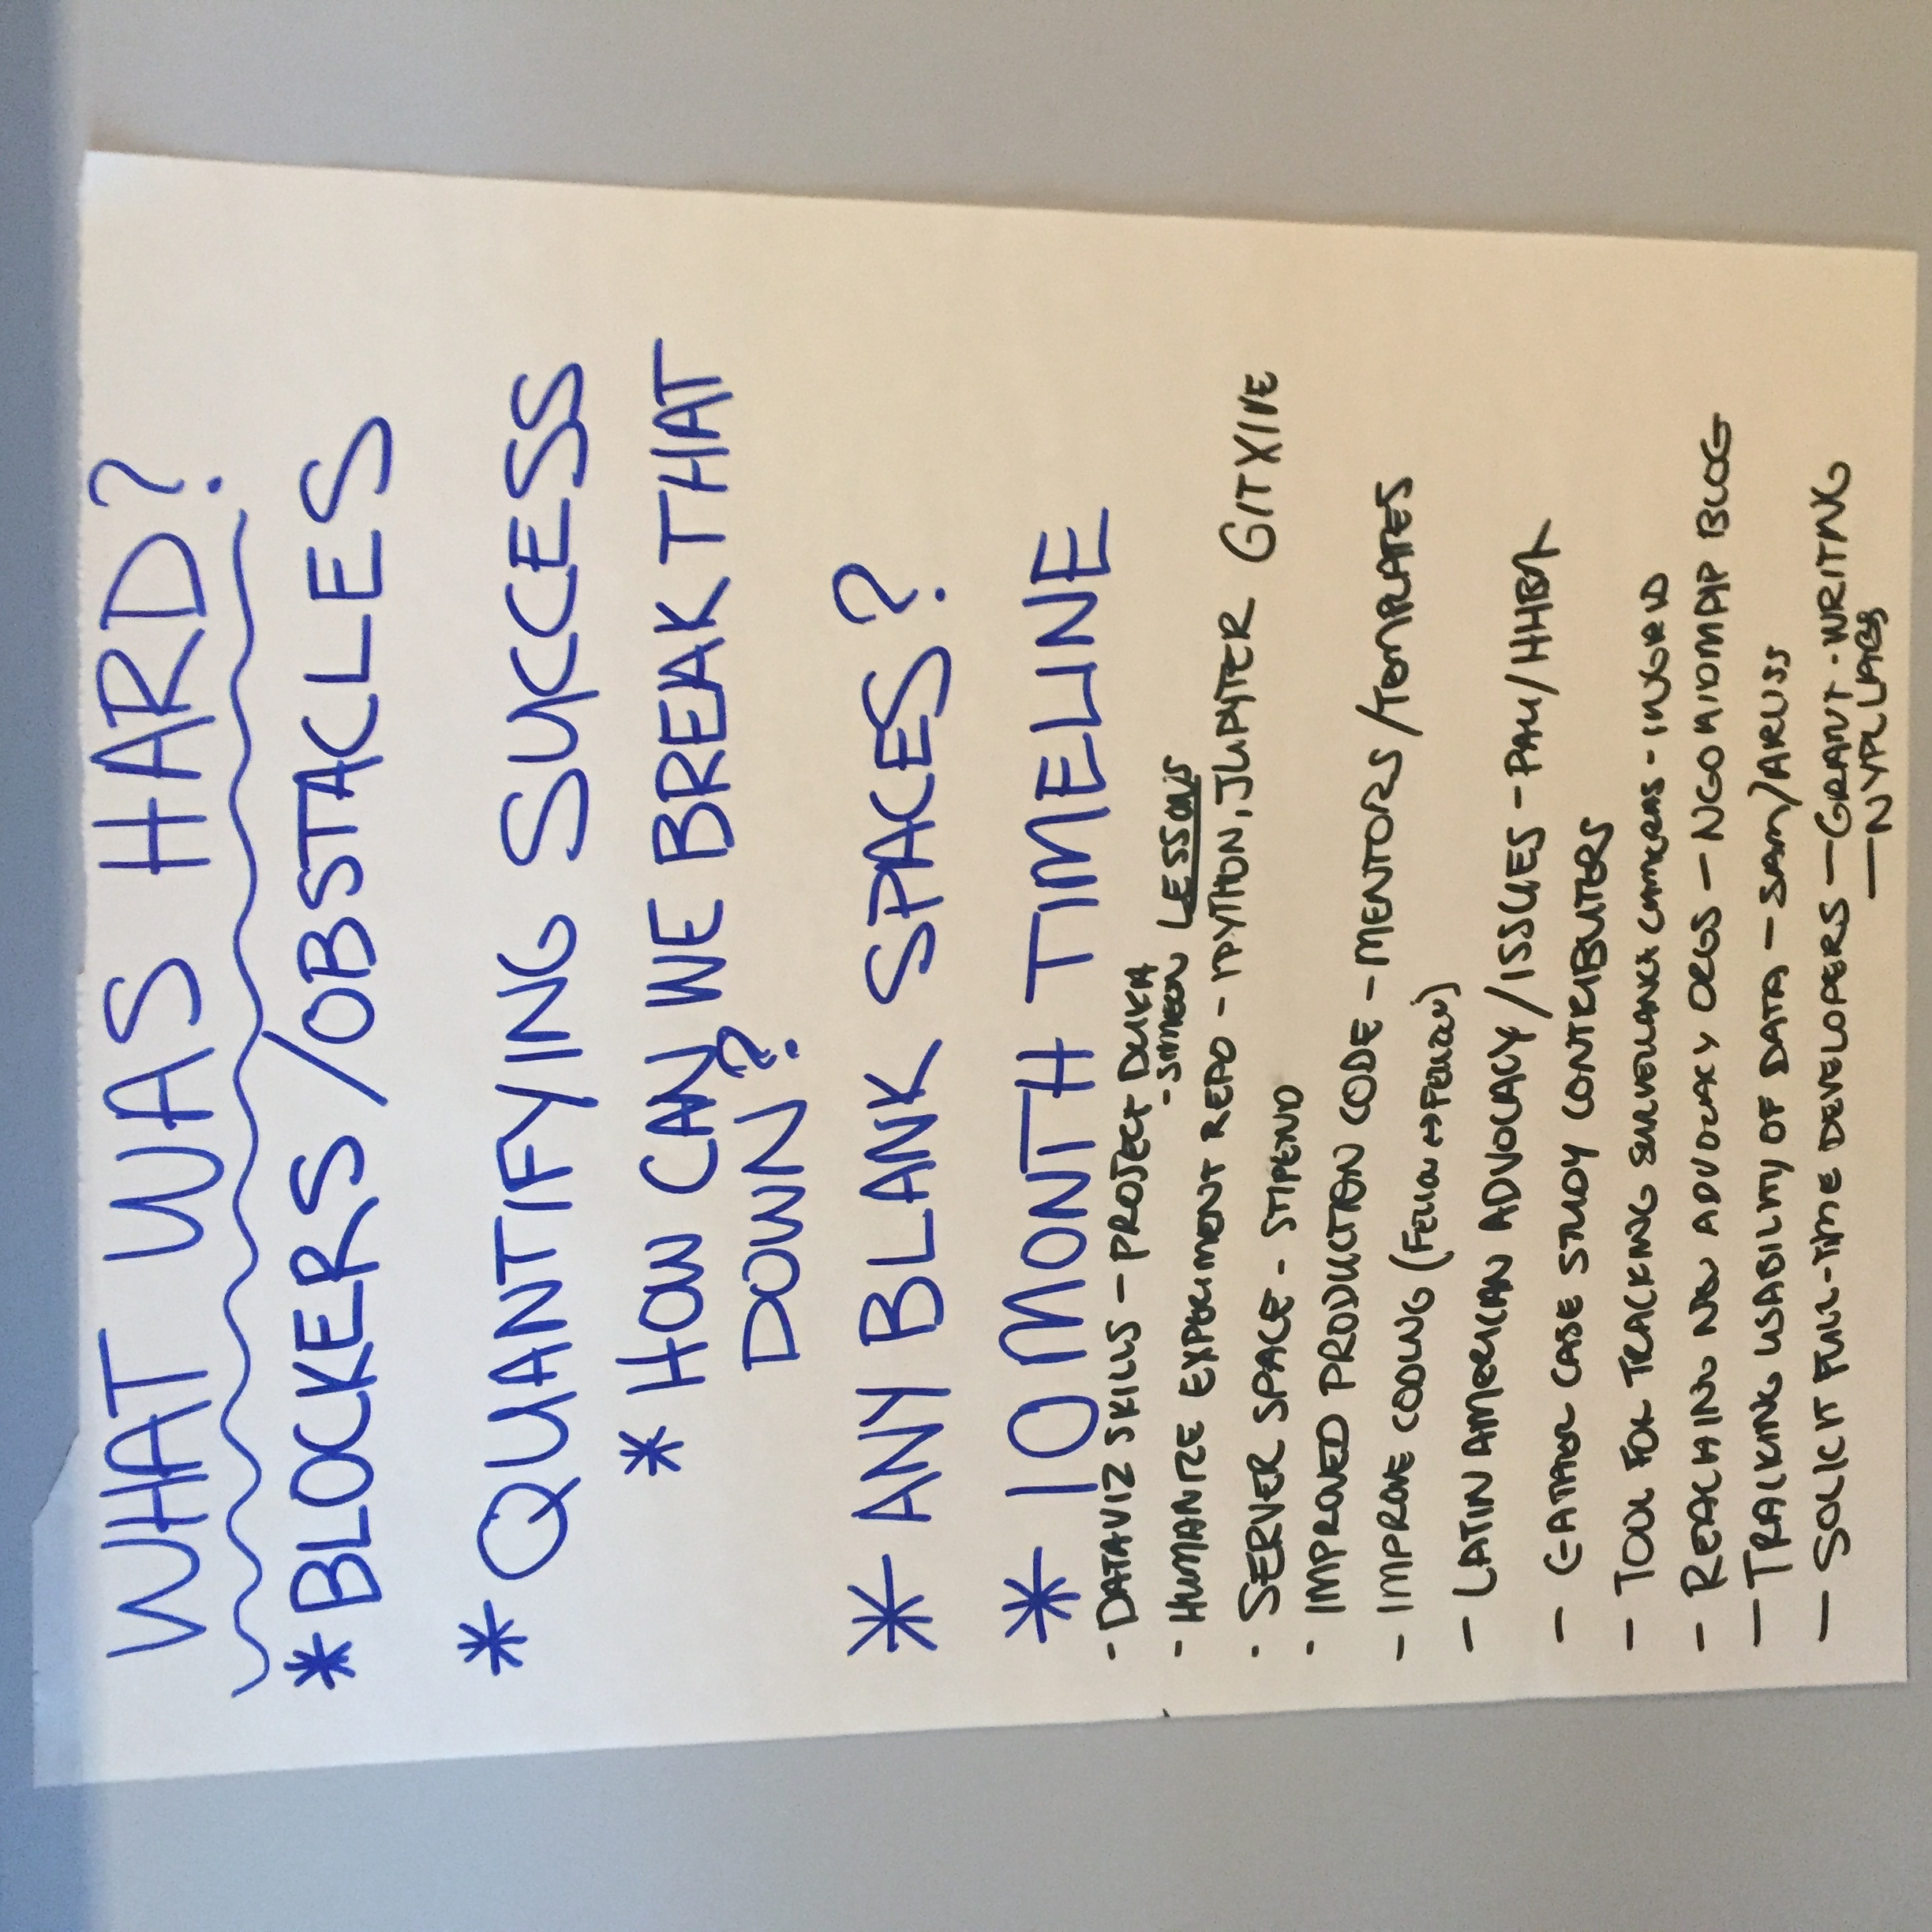 WHAT WAS HARD?
* BLOCKERS / OBSTACLES
* QUANTIFYING SUCCESS
* HOW CAN WE BREAK THAT
DOWN?
* ANY BLANK SPACES?
* 10 MONTH TIMELINE
- DATAVIZ SKILLS - PROJECT DUKA
- SIMEON LESSONS
- HUMANIZE EXPERIMENT REPO - IPYTHON, JUPYTER GITXIVE
- SERVER SPACE - STIPEND
- IMPROVED PRODUCTION CODE - MENTORS / TEMPLATES
- IMPROVE CODING (FELLOW ↔ FELLOW)
- LATIN AMERICAN ADVOCACY / ISSUES - PAU /
- GATHER CASE STUDY CONTRIBUTERS
- TOOL FOR TRACKING SURVEILLANCE CAMERAS - INGRID
- REACHING NEW ADVOCACY ORGS - NGO BLOG
- TRACKING USABILITY OF DATA - SAM / ARUSS
- SOLICIT FULL-TIME DEVELOPERS - GRANT-WRITING
- NYPL LABS